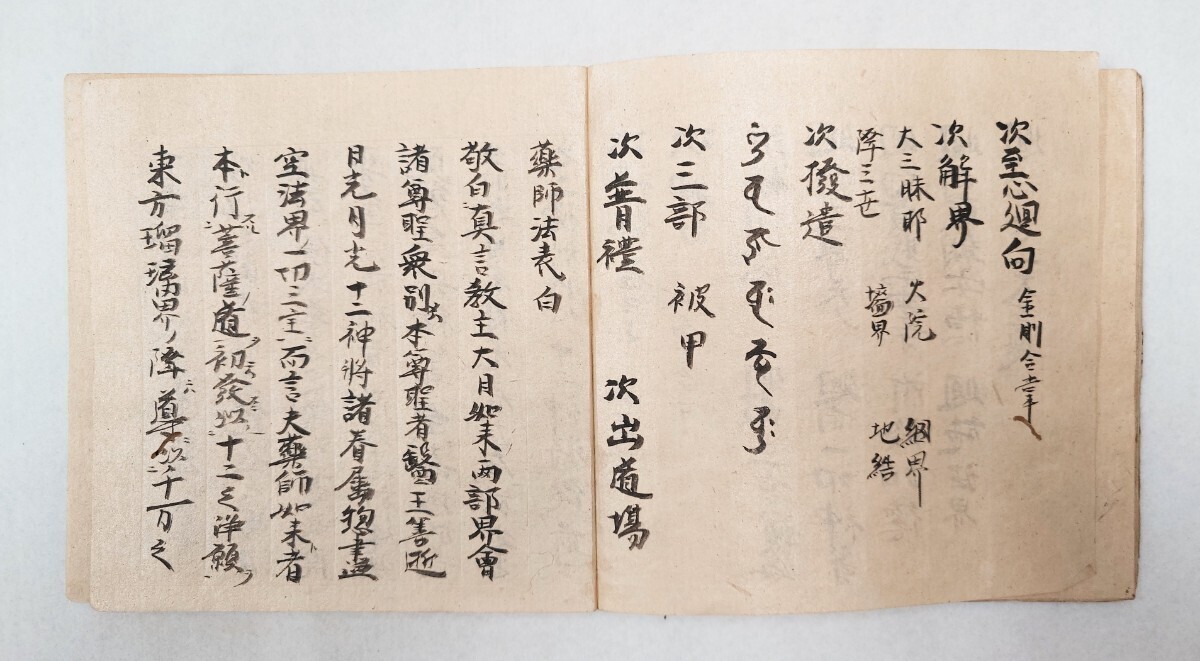 次至心廻向 金剛合掌
次解界
大三昧耶 火院 網界
降三世 墻界 地結
次撥遣
次三部 被甲
次普禮 次出道場
藥師法表白
敬白真言教主大日如来両部界會
諸尊聖衆別本尊聖者醫王善逝
日光月光十二神將諸眷属惣盡
空法界一切三宝而言夫藥師如来者
本行菩薩道初發十二之誓願
東方瑠璃界降導十万之